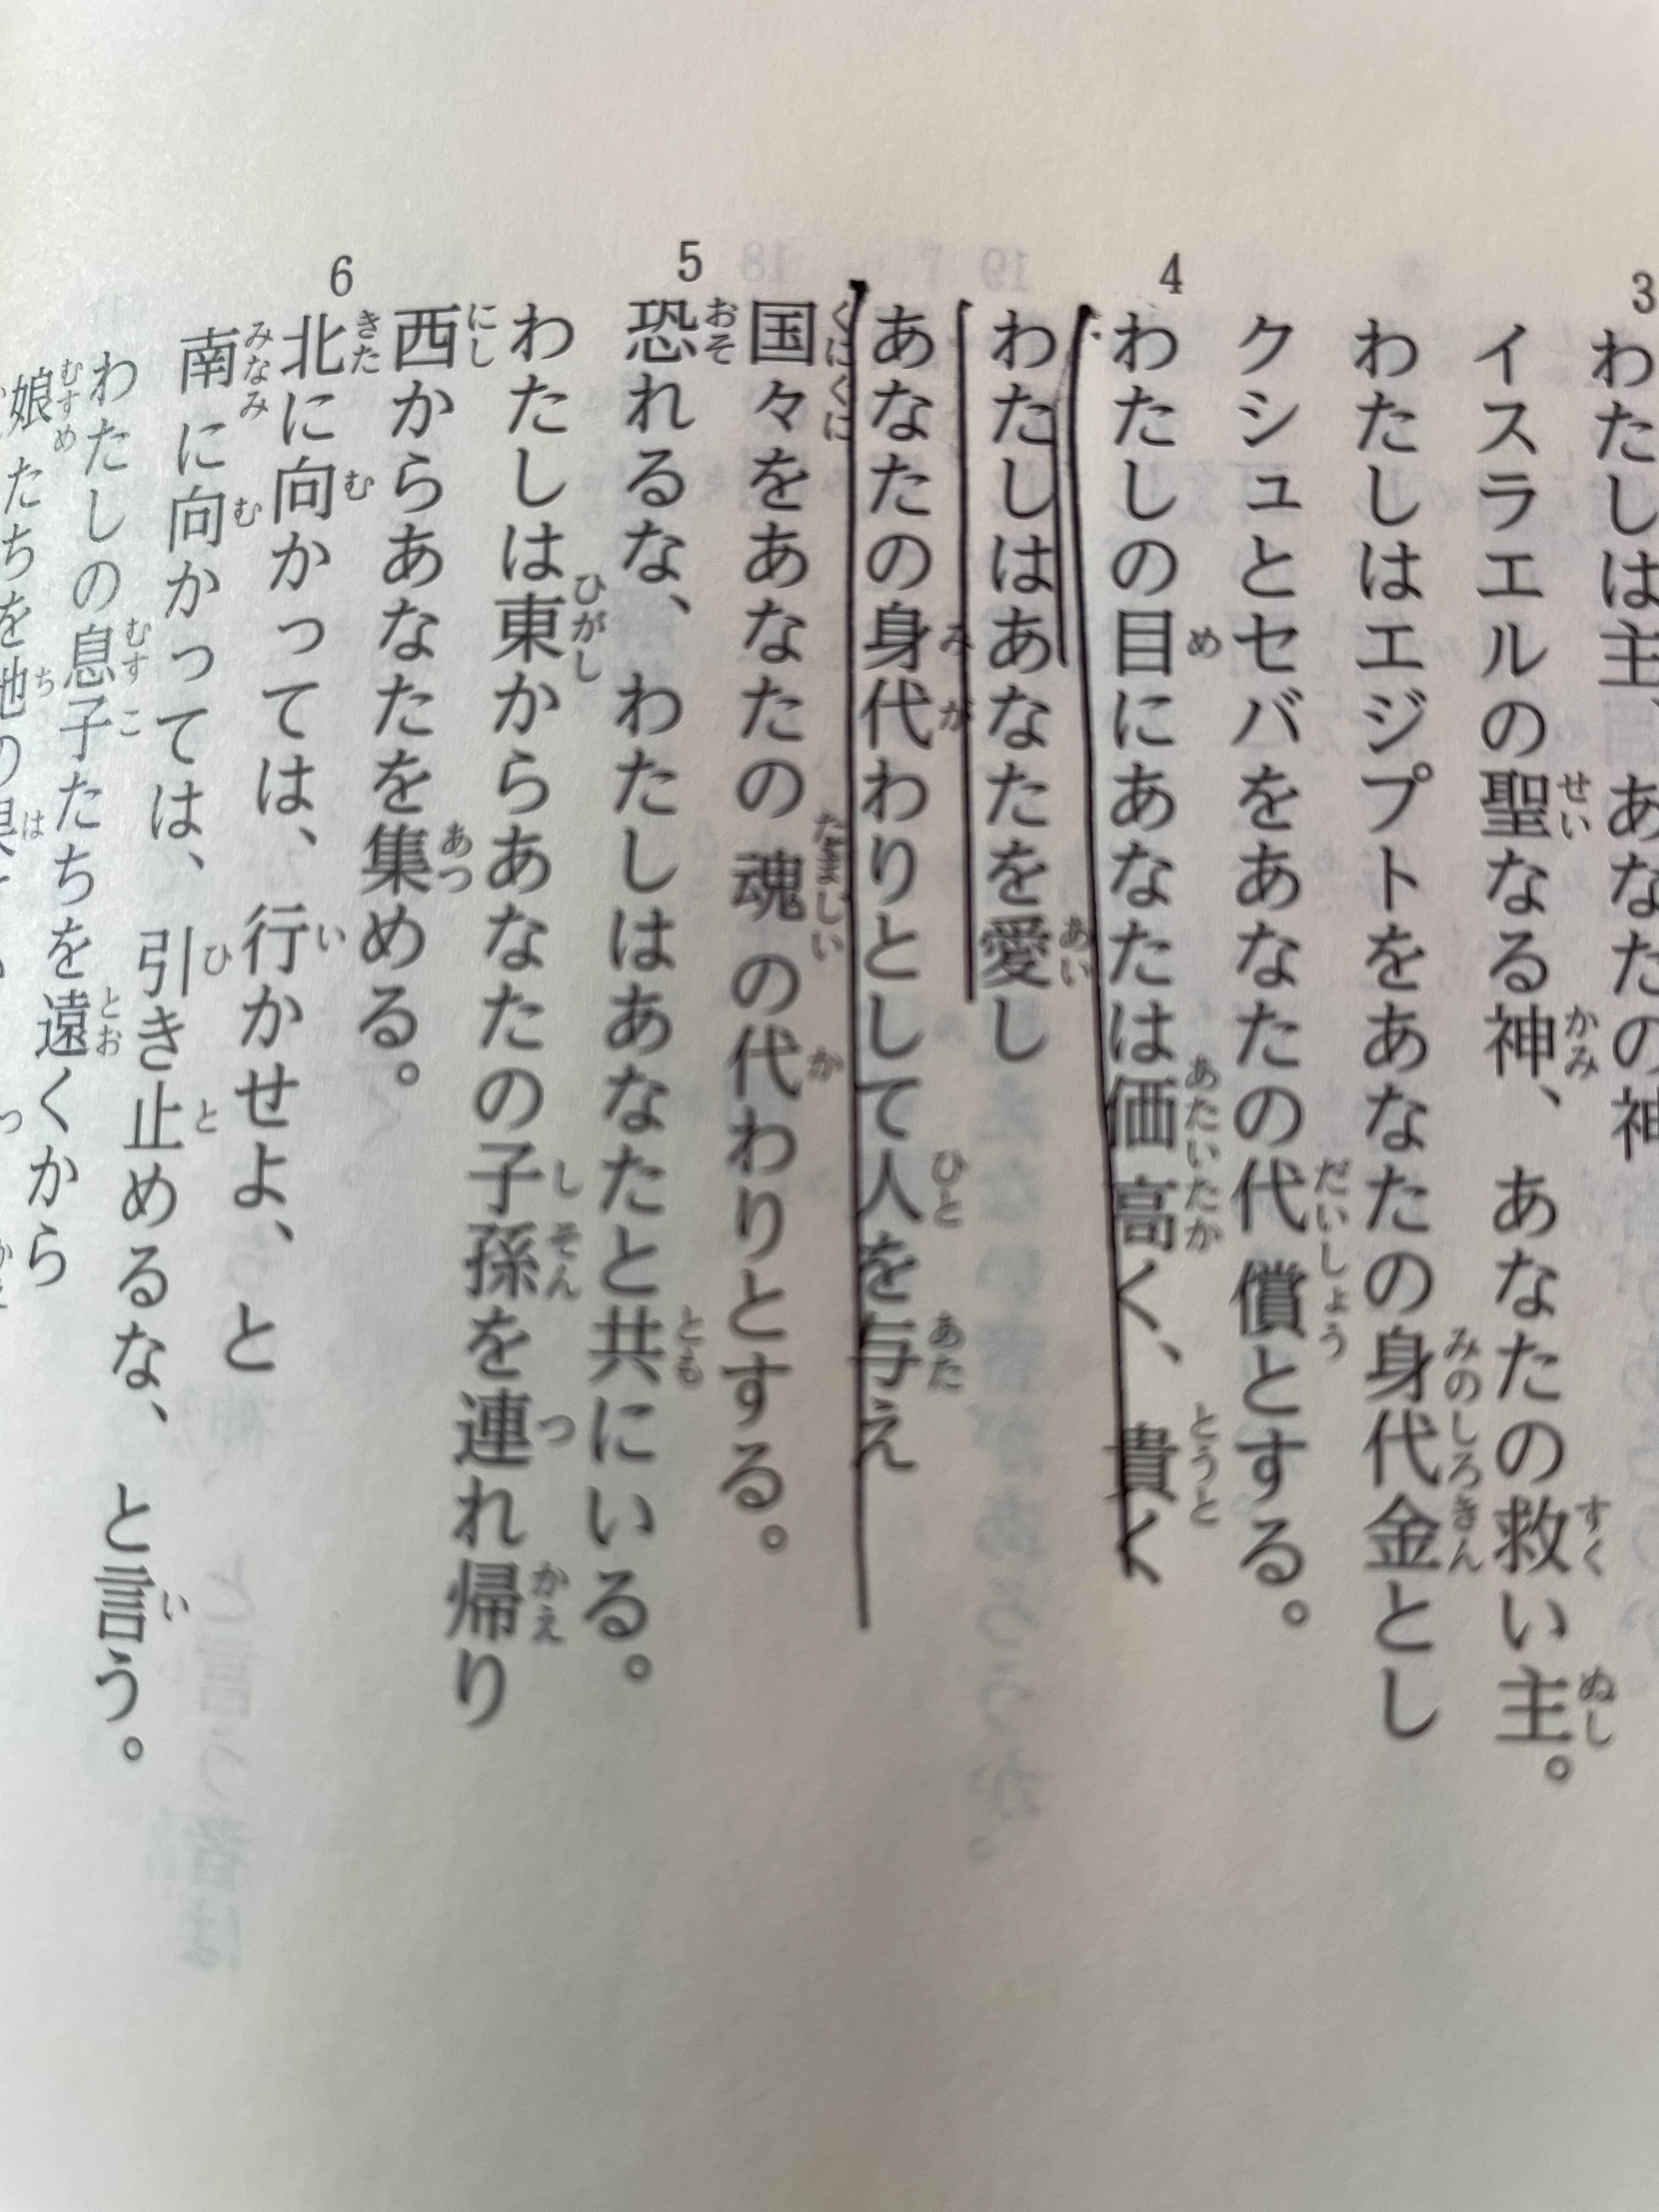 3
わたしは主、あなたの神
イスラエルの聖なる神、あなたの救い主。
わたしはエジプトをあなたの身代金とし
クシュとセバをあなたの代償とする。
4
わたしの目にあなたは価高く、貴く
わたしはあなたを愛し
あなたの身代わりとして人を与え
国々をあなたの魂の代わりとする。
5
恐れるな、わたしはあなたと共にいる。
わたしは東からあなたの子孫を連れ帰り
西からあなたを集める。
6
北に向かっては、行かせよ、と
南に向かっては、引き止めるな、と言う。
わたしの息子たちを遠くから
娘たちを地の果て